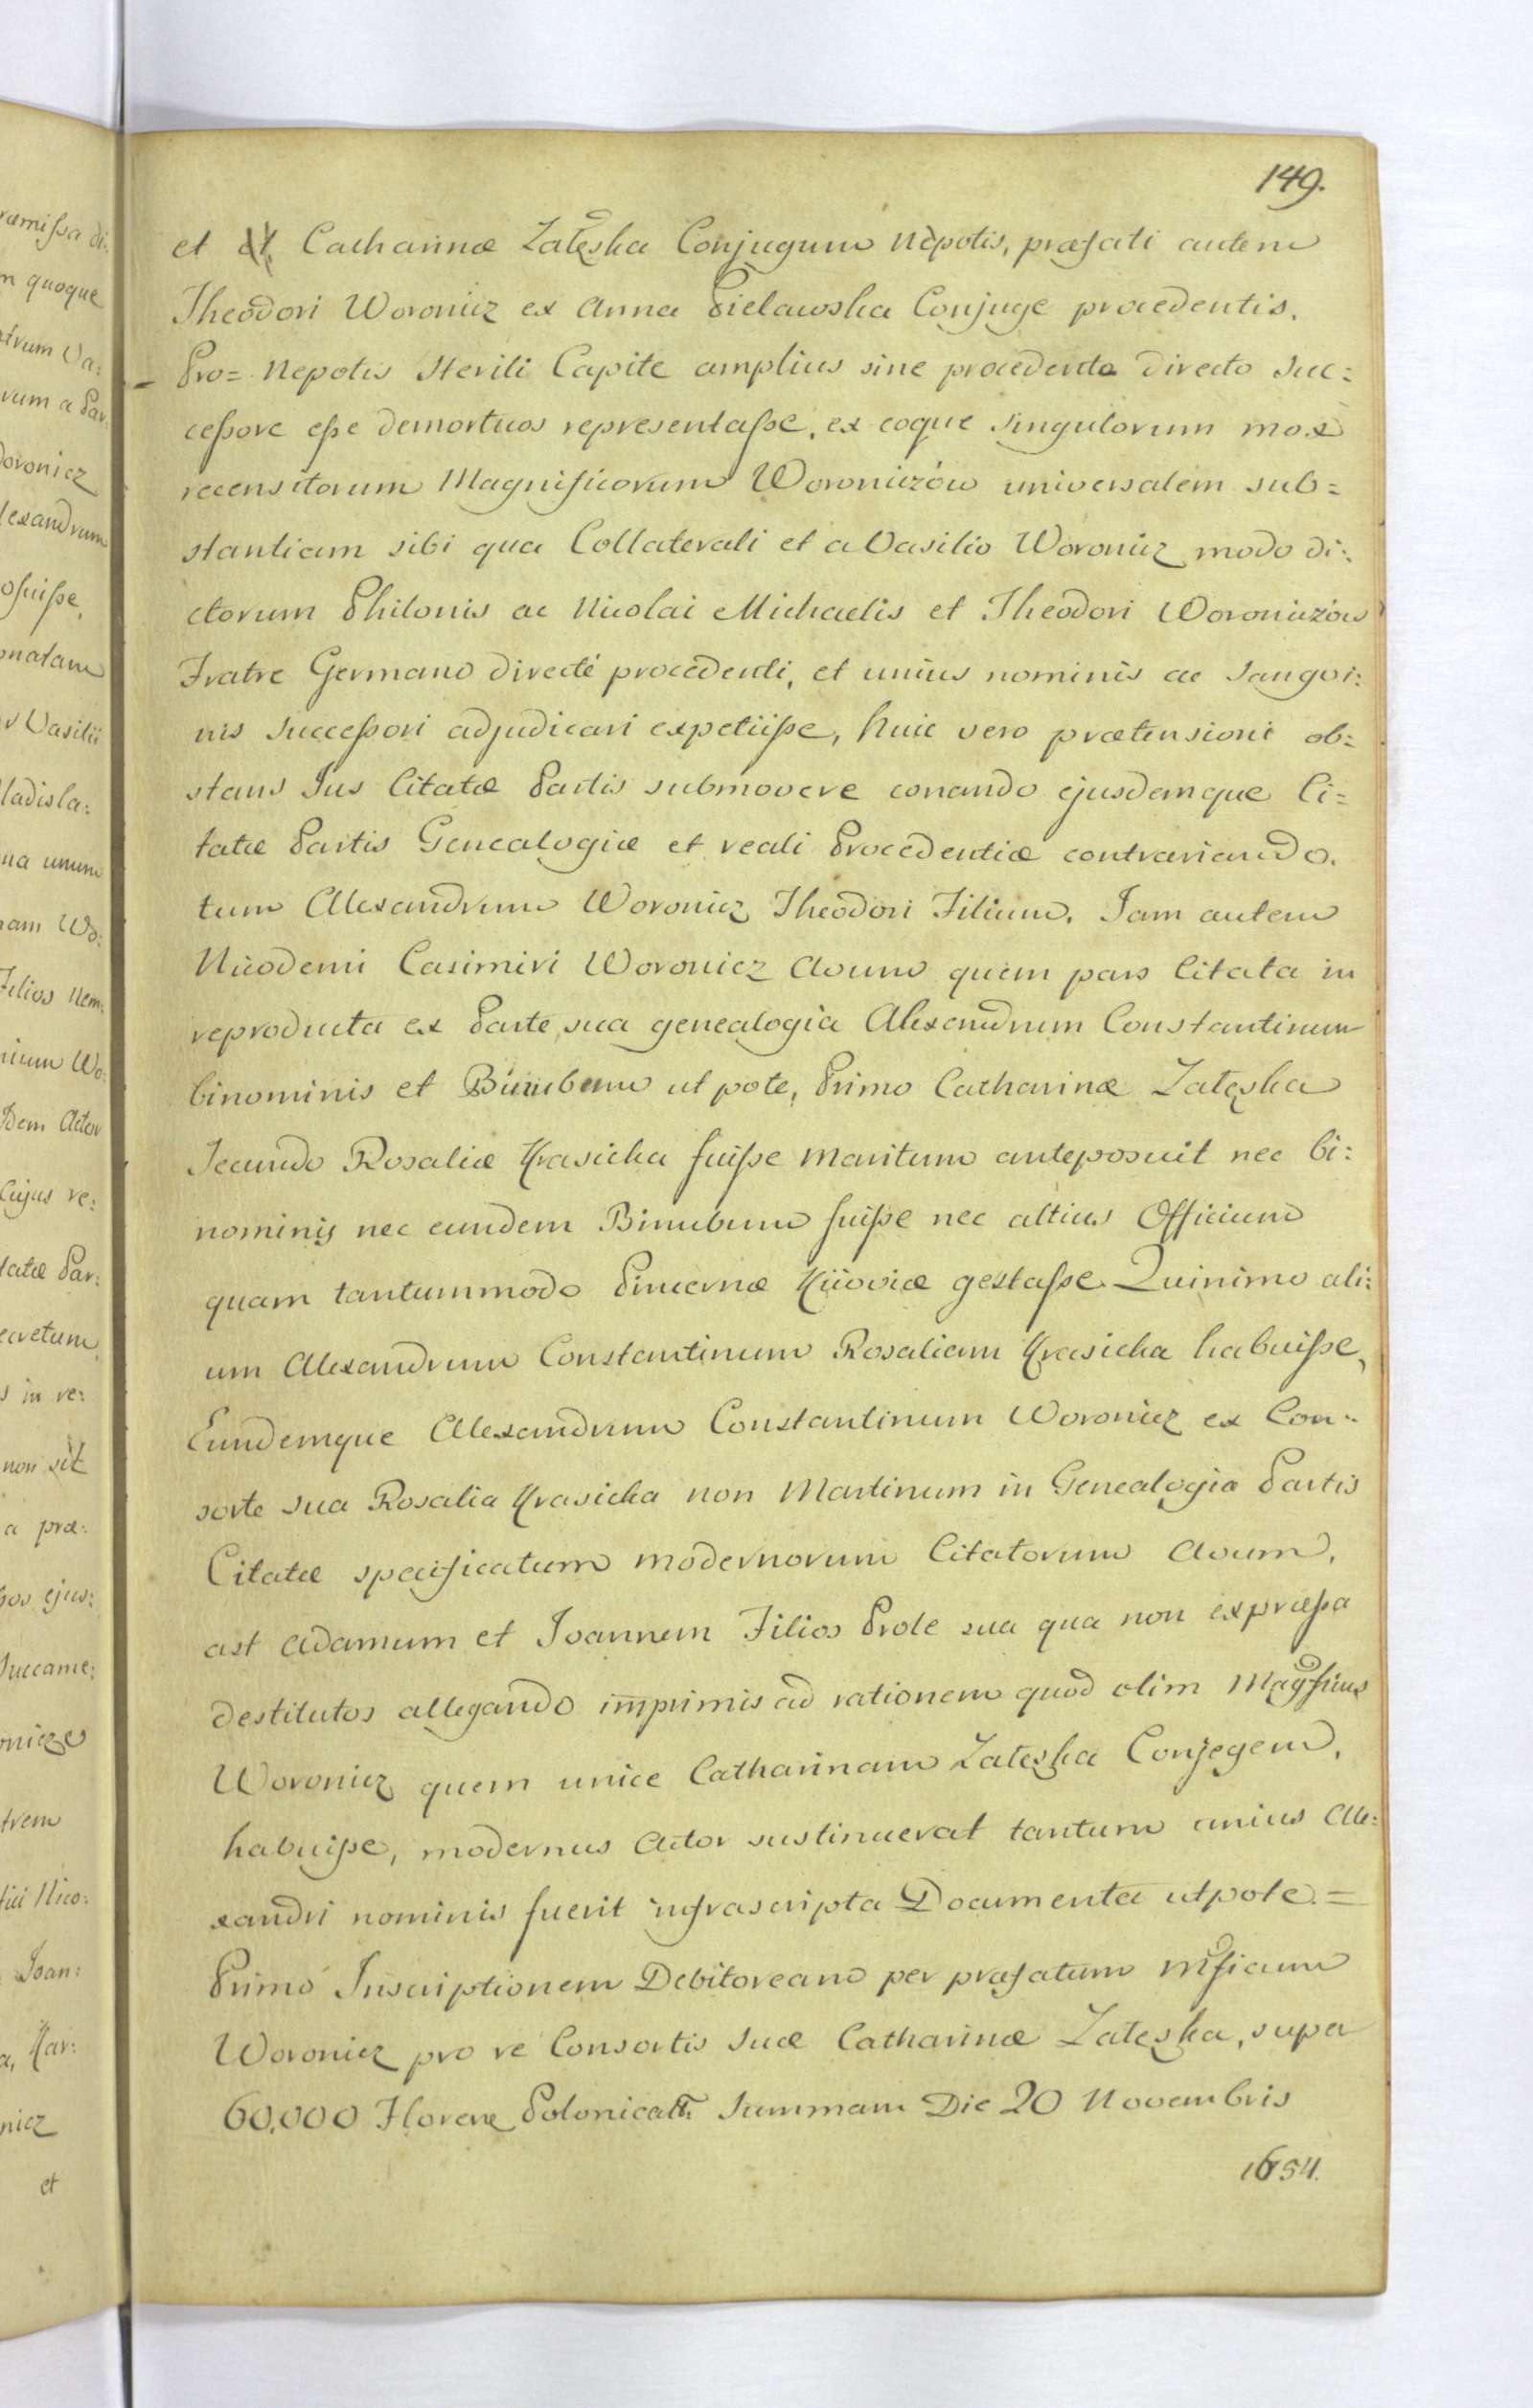 149.
et Catharinæ Załęska Conjugum Nepotis, præfati autem
Theodori Woronicz ex Anna Pielawska Conjuge procedentis.
Pro= Nepotis Sterili Capite amplius sine procedente directo Suc=
cessore esse demortuos representasse, ex eoque singulorum mox
recensitorum Magnificorum Woroniczów universalem sub=
stantiam sibi qua Collaterali et a Vasilio Woronicz modo di:
ctorum Philonis ac Nicolai Michaelis et Theodori Woroniczów
Fratre Germano directé procedenti, et unius nominis ac Sangvi:
nis Successori adjudicari expetiisse, huic vero prætensioni ob=
stans Jus Citatæ Partis submovere conando ejusdemque Ci=
tatæ Partis Genealogiæ et reali Procedentiæ contrariando.
tum Alexandrum Woronicz Theodori Filium. Jam autem
Nicodemi Casimiri Woronicz Avum quem pars Citata in
reproducta ex Parte sua genealogia Alexandrum Constantinum
binominis et Binubum ut pote, Primo Catharinæ Załęska
Secundo Rosaliæ Krasicka fuisse maritum anteposuit nec bi:
nominis nec eundem Binubum fuisse nec altius Officium
quam tantummodo Pincernæ Kijoviæ gestasse. Quinimo ali:
um Alexandrum Constantinum Rosaliam Krasicka habuisse,
Eundemque Alexandrum Constantinum Woronicz ex Con:
sorte sua Rosalia Krasicka non Martinum in Genealogia Partis
Citatæ specificatum modernorum Citatorum Avum,
ast Adamum et Joannem Filios Prole sua qua non expræssa
destitutos allegando imprimis ad rationem quod olim Magficus
Woronicz quem unice Catharinam Załęska Conjegem,
habuisse, modernus Actor sustinuerat tantum unius Ale:
xandri nominis fuerit infrascripta Documenta utpote. =
Primo Inscriptionem Debitoream per præfatum Mficum
Woronicz pro re Consortis suæ Catharinæ Załęska, super
60,000 Floren Polonicaln Summam Die 20 Novembris
1654.